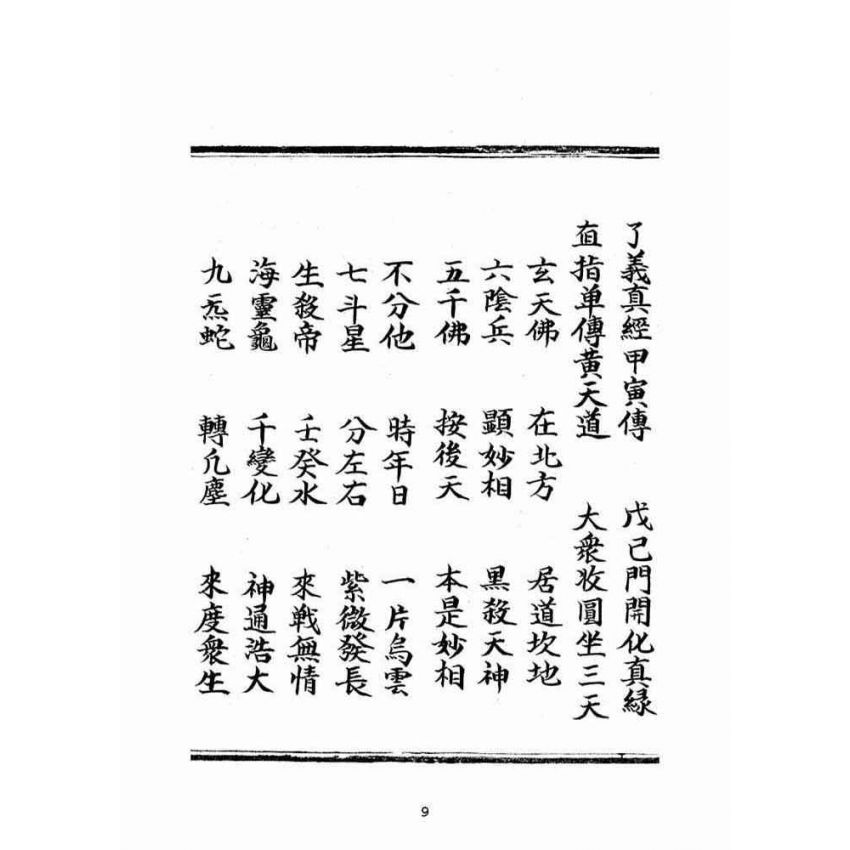 了義真經甲寅傳　戊己門開化真緣
直指单傳黄天道　大衆收圓坐三天
玄天佛　在北方　居道坎地
六陰兵　顕妙相　黑殺天神
五千佛　按後天　本是妙相
不分他　時年日　一片烏雲
七斗星　分左右　紫微發長
生殺帝　壬癸水　來戰無情
海靈龜　千變化　神通浩大
九炁蛇　轉凢塵　來度衆生
9